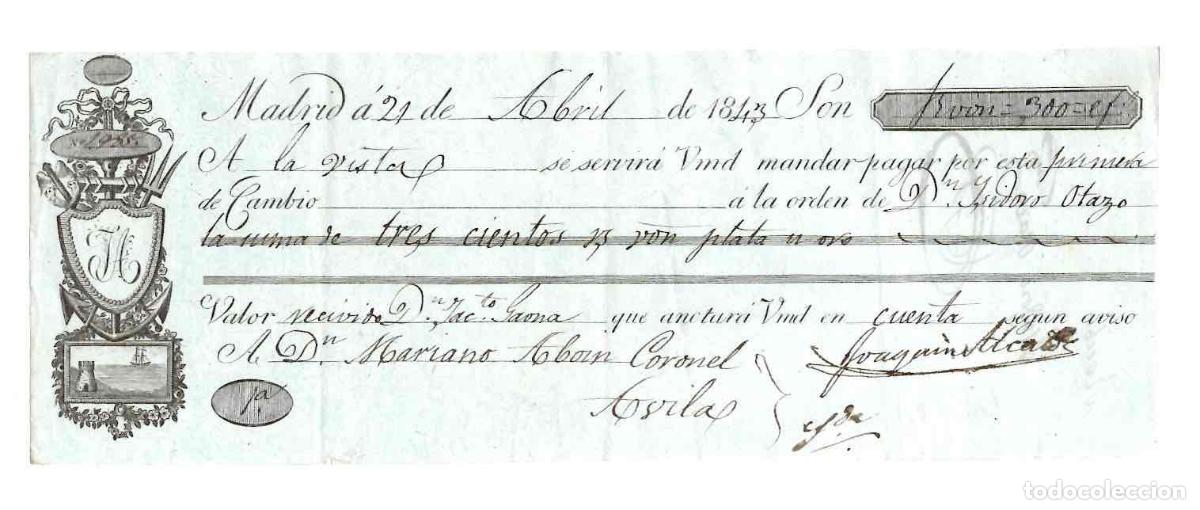 Madrid á 21 de Abril de 1843 Son Rvon = 300 = ef.
No
A la vista se servirá Vmd mandar pagar por esta primera
de Cambio á la orden de Dn. Ysidoro Otazo
la suma de tres cientos rs von plata u oro
JA
Valor recivido Dn. Jacto. Gaona que anotará Vmd en cuenta segun aviso
A Dn Mariano Aboin Coronel
Joaquin Alcalde
Avila
pa
todocoleccion